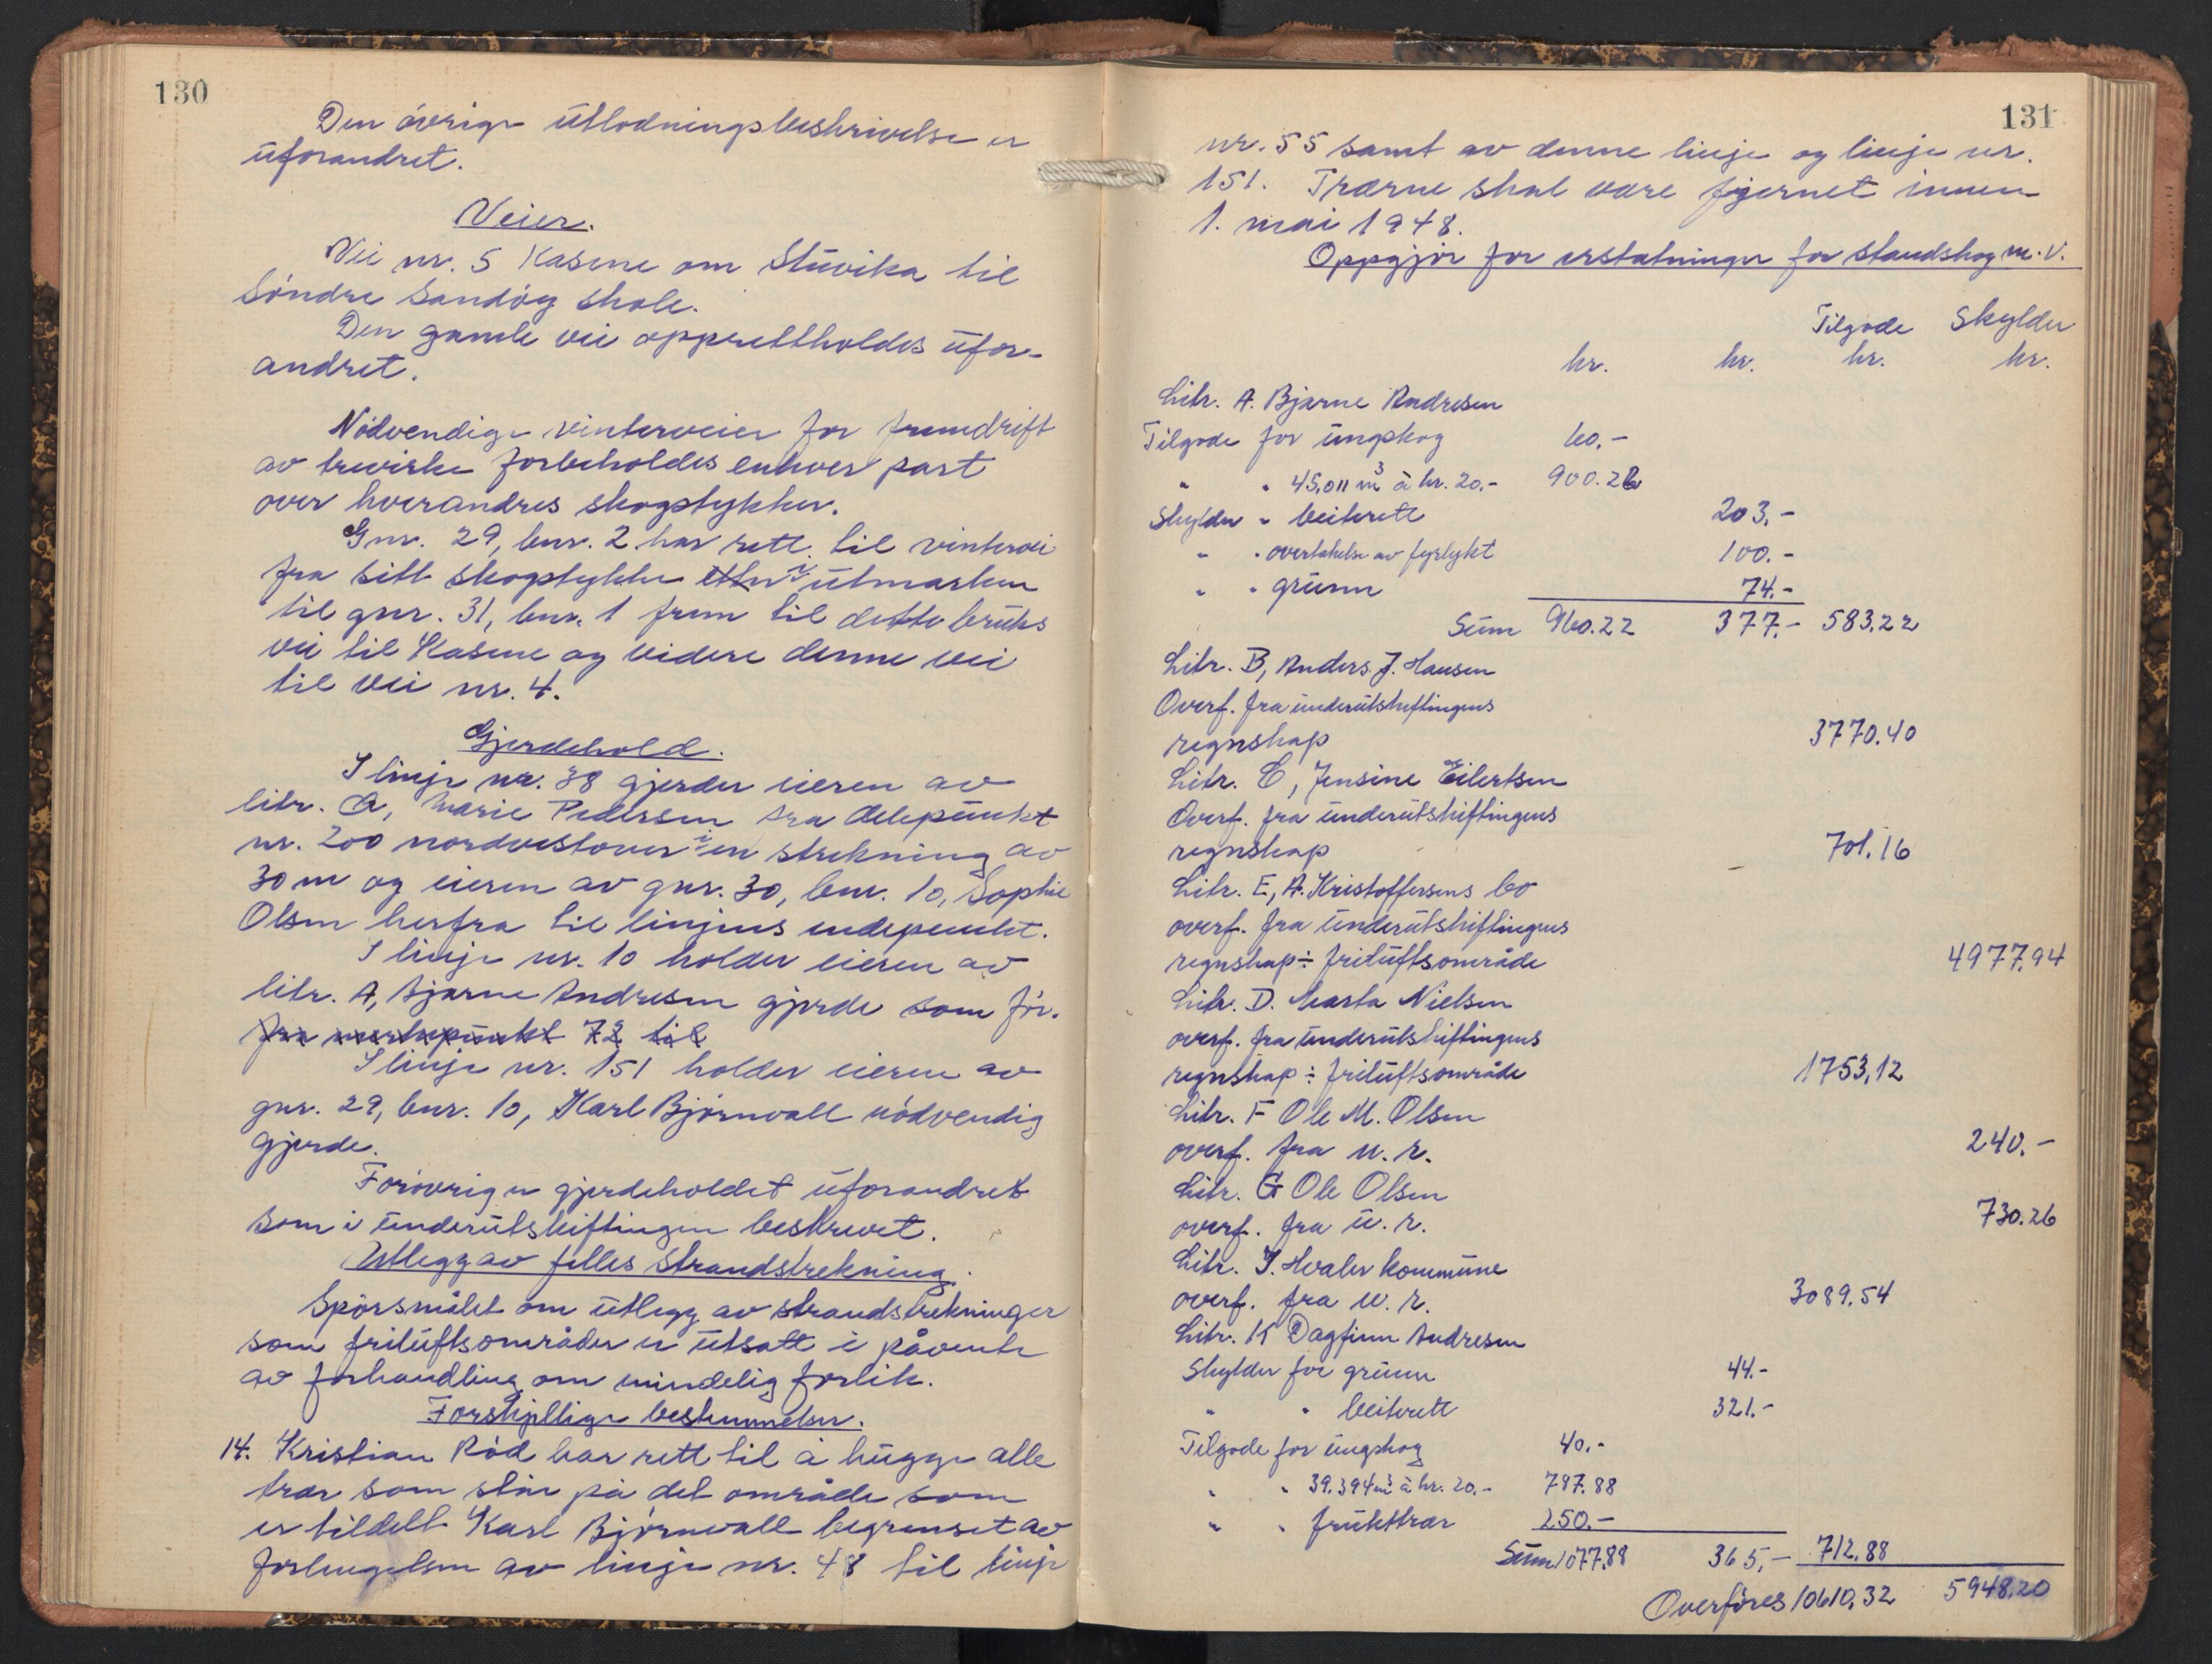 130
Den övrige utlodningsbeskrivelse er
uforandret.
Veier.
Vei nr. 5 Kasene om Stuvika til
Söndre Sandöy skole.
Den gamle vei opprettholdes ufor-
andret.
Nödvendige vinterveier for fremdrift
av trevirke forbeholdes enhver part
over hverandres skogstykker.
Gnr. 29, bnr. 2 har rett til vintervei
fra sitt skogstykke etter i utmarken
til gnr. 31, bnr. 1 frem til dette bruks
vei til Kasene og videre denne vei
til vei nr. 4.
Gjerdehold.
I linje nr. 38 gjerder eieren av
litr. Q, Marie Pedersen fra delepunkt
nr. 200 nordvestover i en strekning av
30 m og eieren av gnr. 30, bnr. 10, Sophie
Olsen herfra til linjens endepunkt.
I linje nr. 10 holder eieren av
litr. A, Bjarne Andresen gjerde som för.
fra merkepunkt 72 til
I linje nr. 151 holder eieren av
gnr. 29, bnr. 10, Karl Björnvall nödvendig
gjerde.
Forövrig er gjerdeholdet uforandret
som i underutskiftingen beskrevet.
Utlegg av felles strandstrekning.
Spörsmålet om utlegg av strandstrekninger
som friluftsområder er utsatt i påvente
av forhandling om mindelig forlik.
Forskjellige bestemmelser.
14. Kristian Röd har rett til å hugge alle
trær som står på det område som
er tildelt Karl Björnvall begrenset av
forlengelsen av linje nr. 48 til linje
131
nr. 55 samt av denne linje og linje nr.
151. Trærne skal være fjernet innen
1. mai 1948.
Oppgjör for erstatninger for standskog m.v.
Tilgode Skylder
kr. kr. kr. kr.
Litr. A. Bjarne Andresen
Tilgode for ungskog 60.-
" " 45,011 m3 à kr. 20.- 900.22
Skylder " beiterett 203.-
" " overtakelse av fyrlykt 100.-
" " grunn 74.-
Sum 960.22 377.- 583.22
Litr. B, Anders J. Hansen
Overf. fra underutskiftingens
regnskap 3770.40
Litr. C, Jensine Eilertsen
Overf. fra underutskiftingens
regnskap 701.16
Litr. E, A. Kristoffersens bo
overf. fra underutskiftingens
regnskap ÷ friluftsområde 4977.94
Litr. D. Marta Nielsen
overf. fra underutskiftingens
regnskap ÷ friluftsområde 1753,12
Litr. F Ole M. Olsen
overf. fra u. r. 240.-
Litr. G Ole Olsen
overf. fra u. r. 730.26
Litr. J. Hvaler kommune
overf. fra u. r. 3089.54
Litr. K Dagfinn Andresen
Skylder for grunn 44.-
" " beiterett 321.-
Tilgode for ungskog 40.-
" " 39.394 m3 à kr. 20.- 787.88
" " frukttrær 250.-
Sum 1077.88 365,- 712.88
Overföres 10610.32 5948.20